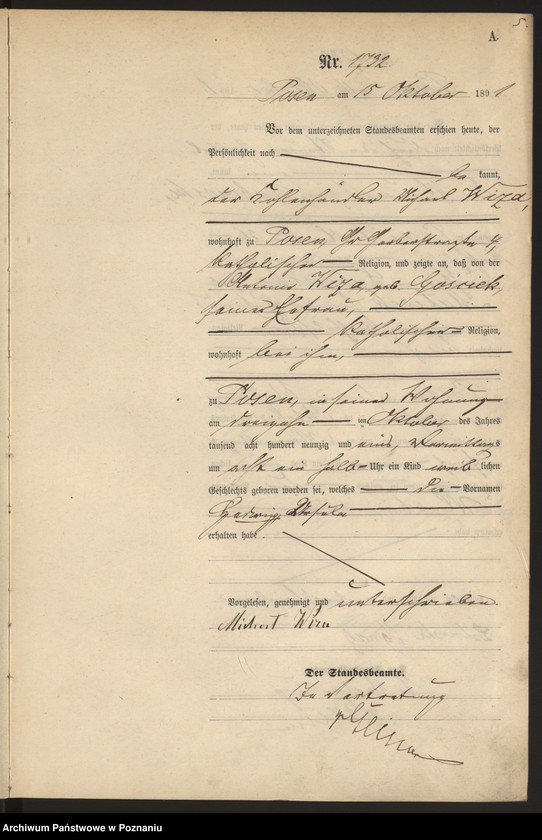 5.
A.
Nr. 1732.
Posen am 15 Oktober 1891
Vor dem unterzeichneten Standesbeamten erschien heute, der
Persönlichkeit nach
be kannt,
der Kohlenhändler Michael Wiza,
wohnhaft zu Posen Gr Gerberstraße 4,
katholischer Religion, und zeigte an, daß von der
Antonie Wiza, geb. Gościek,
seiner Ehefrau,
katholischer Religion,
wohnhaft bei ihm,
zu Posen, in seiner Wohnung
am dreizehn ten Oktober des Jahres
tausend acht hundert neunzig und eins, Vormittags
um acht ein halb Uhr ein Kind weib lichen
Geschlechts geboren worden sei, welches die Vornamen
Hedwig Ursula
erhalten habe.
Vorgelesen, genehmigt und unterschrieben.
Michael Wiza
Der Standesbeamte.
In Vertretung
Archiwum Państwowe w Poznaniu